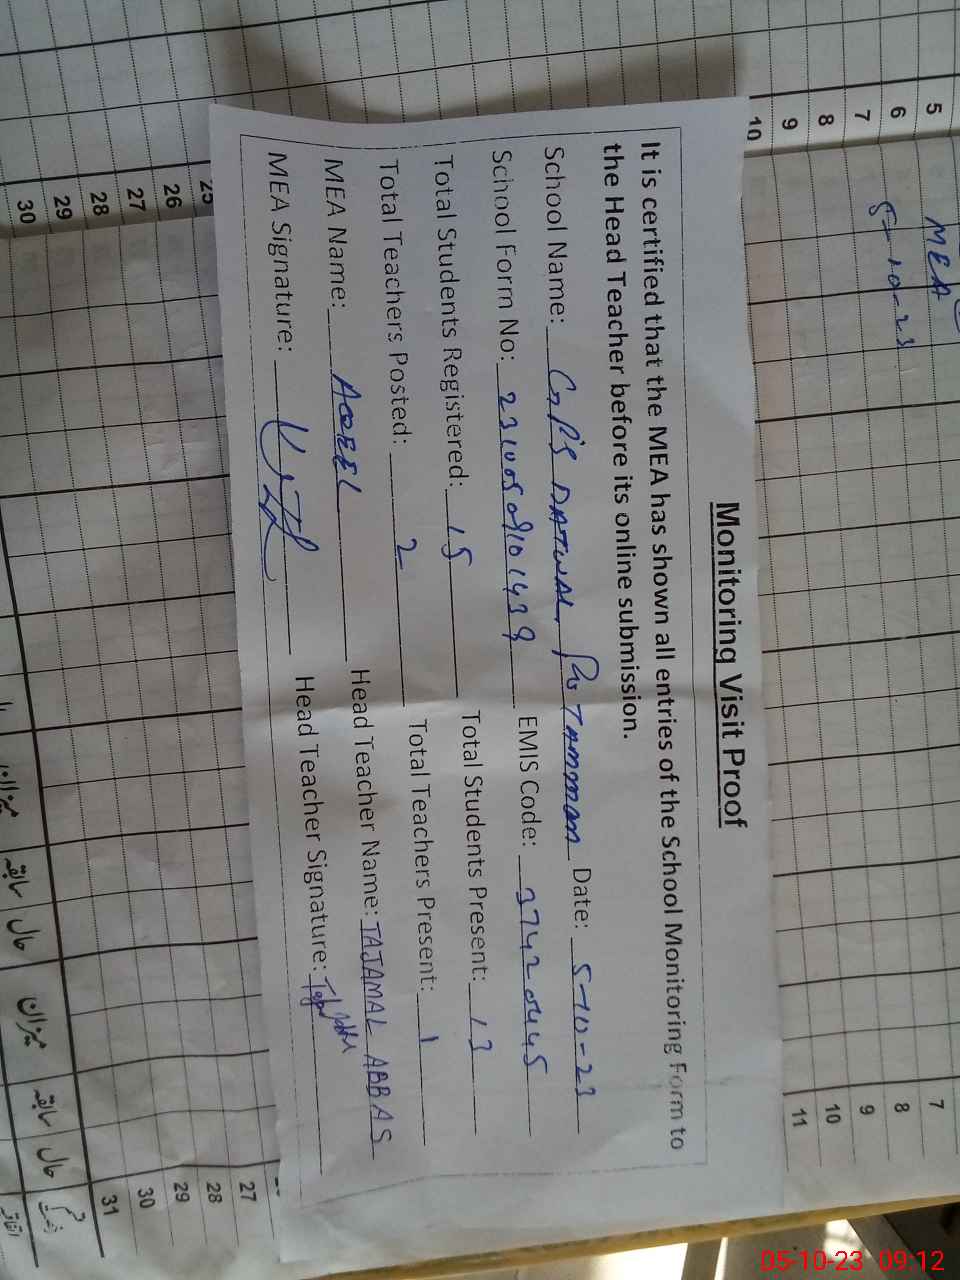 Monitoring Visit Proof
It is certified that the MEA has shown all entries of the School Monitoring Form to
the Head Teacher before its online submission.
School Name: GPS DATWAL P/O TAMMAN Date: 5-10-23
School Form No: EMIS Code: 37420445
Total Students Registered: 15 Total Students Present: 13
Total Teachers Posted: 2 Total Teachers Present: 1
MEA Name: AQEEL Head Teacher Name: TAJAMAL ABBAS
MEA Signature: Head Teacher Signature:
MEA
5-10-23
5
6
7
8
9
10
25
26
27
28
29
30
7
8
9
10
11
27
28
29
30
31
میزان
سابقہ
حال
میزان
سابقہ
حال
05-10-23 09:12